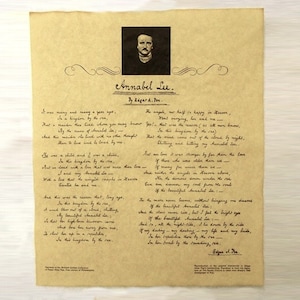 Annabel Lee.
By Edgar A. Poe.
It was many and many a year ago,
In a kingdom by the sea,
That a maiden there lived whom you may know
By the name of Annabel Lee; —
And this maiden she lived with no other thought
Than to love and be loved by me.
She was a child and I was a child,
In this kingdom by the sea,
But we loved with a love that was more than love —
I and my Annabel Lee —
With a love that the wingéd seraphs of Heaven
Coveted her and me.
And this was the reason that, long ago,
In this kingdom by the sea,
A wind blew out of a cloud, chilling
My beautiful Annabel Lee;
So that her highborn kinsmen came
And bore her away from me,
To shut her up in a sepulchre
In this kingdom by the sea.
The angels, not half so happy in Heaven,
Went envying her and me —
Yes! that was the reason (as all men know,
In this kingdom by the sea)
That the wind came out of the cloud by night,
Chilling and killing my Annabel Lee.
But our love it was stronger by far than the love
Of those who were older than we —
Of many far wiser than we —
And neither the angels in Heaven above,
Nor the demons down under the sea,
Can ever dissever my soul from the soul
Of the beautiful Annabel Lee: —
For the moon never beams, without bringing me dreams
Of the beautiful Annabel Lee;
And the stars never rise, but I feel the bright eyes
Of the beautiful Annabel Lee: —
And so, all the night-tide, I lie down by the side
Of my darling — my darling — my life and my bride,
In her sepulchre there by the sea —
In her tomb by the sounding sea.
Edgar A. Poe.